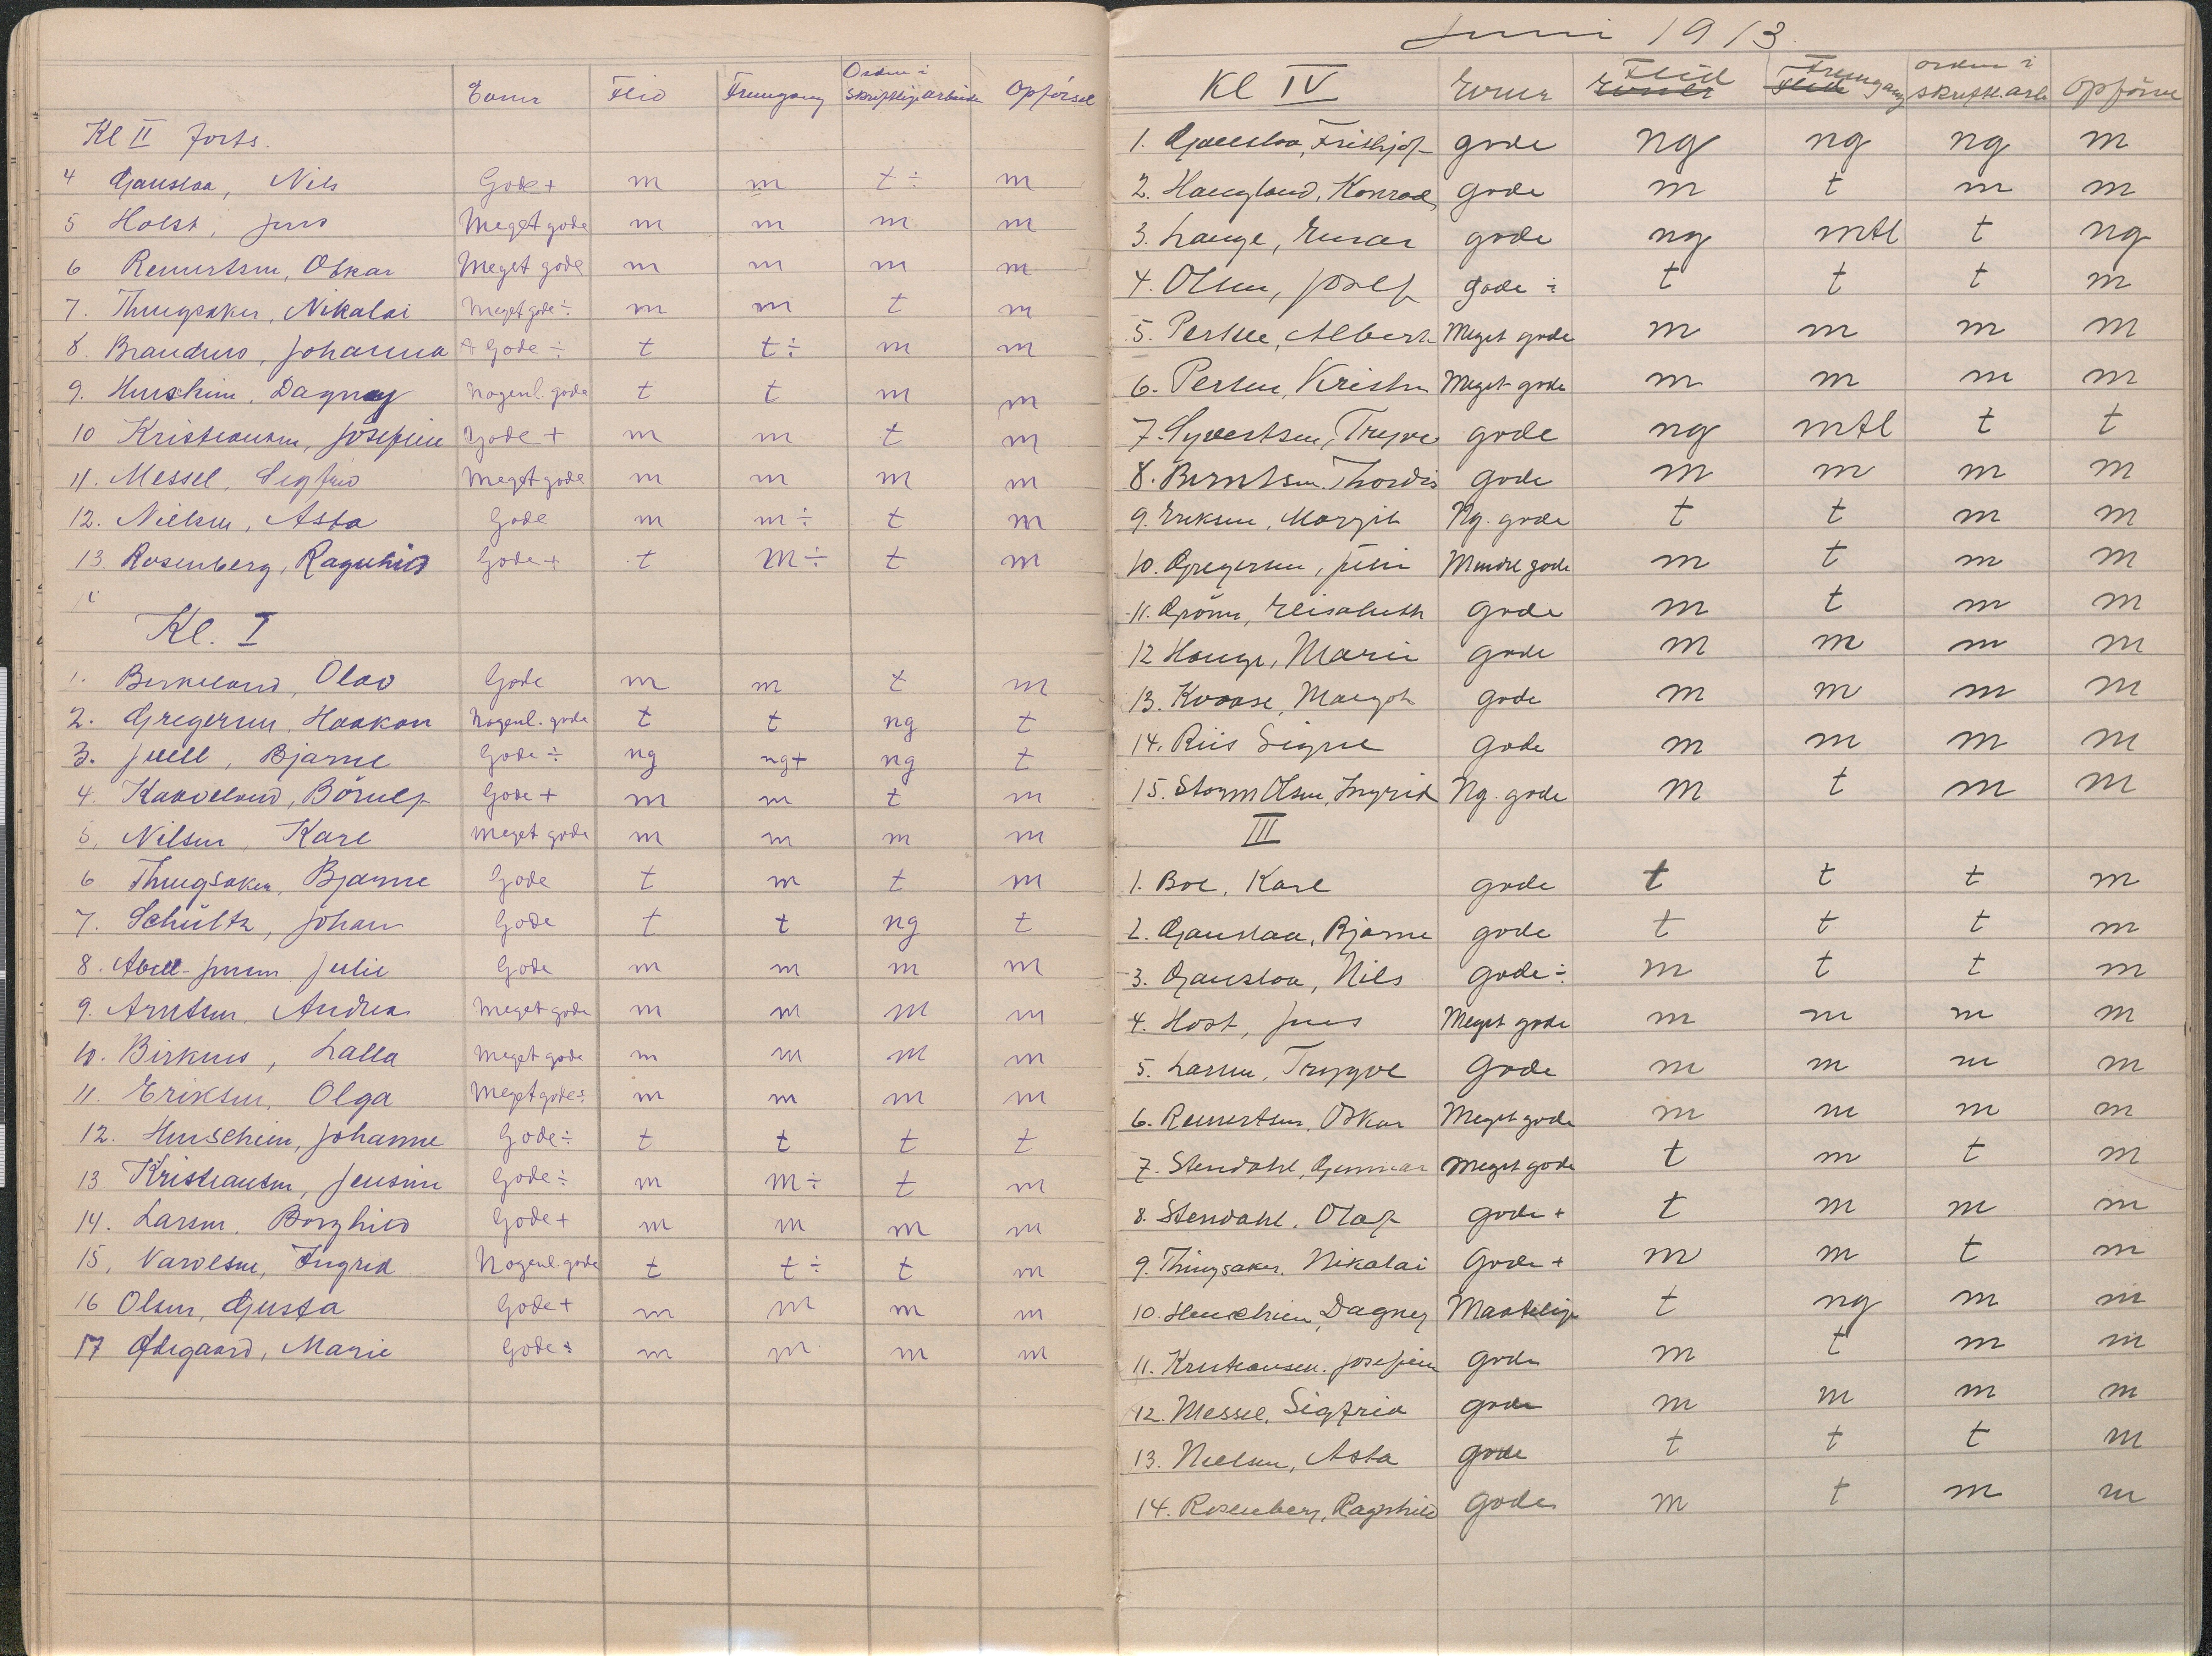 Evner Flid Fremgang Orden i skriftlige arbeider Opförsel
Kl II forts.
4 Gauslaa, Nils Gode + m m t ÷ m
5 Holst, Jens Meget gode m m m m
6 Reinertsen, Oskar Meget gode m m m m
7. Thingsaker, Nikolai Meget gode ÷ m m t m
8. Brandmo, Johanna Gode ÷ t t ÷ m m
9. Henschien, Dagny Nogenl. gode t t m m
10 Kristiansen, Josefine Gode + m m t m
11. Messel, Sigfrid Meget gode m m m m
12. Nielsen, Asta Gode m m ÷ t m
13. Rosenberg, Ragnhild Gode + t m ÷ t m
Kl. I
1. Birkeland, Olav Gode m m t m
2. Gregersen, Haakon Nogenl. gode t t ng t
3. Juell, Bjarne Gode ÷ ng ng+ ng t
4. Kaaveland, Börulf Gode + m m t m
5. Nilsen, Kare Meget gode m m m m
6 Thingsaker, Bjarne Gode t m t m
7. Schültz, Johan Gode t t ng t
8. Abell-Jensen Julie Gode m m m m
9. Arntsen, Andrea Meget gode m m m m
10. Birknes, Lalla Meget gode m m m m
11. Eriksen, Olga Meget gode ÷ m m m m
12. Henschien, Johanne Gode ÷ t t t t
13 Kristiansen, Jensine Gode ÷ m m ÷ t m
14. Larsen, Borghild Gode + m m m m
15, Ingrid Nogenl. gode t t ÷ t m
16 Olsen, Gusta Gode + m m m m
17 Ødegaard, Marie Gode ÷ m m m m
Juni 1913.
Kl IV Evner Flid Fremgang orden i skriftl. arb Opförsel
1. Gauslaa, Frithjof gode ng ng ng m
2. Haugland, Konrad gode m t m m
3. Lange, Einar gode ng mtl t ng
4. Olsen, Josef gode ÷ t t t m
5. Albert Meget gode m m m m
6. Persen, Kristen Meget gode m m m m
7. Syvertsen, Trygve gode ng mtl t t
8. Berntsen, Thordis gode m m m m
9. Eriksen, Margit Ng. gode t t m m
10. Gregersen, Mindre gode m t m m
11. Grönn, Elisabeth gode m t m m
12 Hauge, Marie gode m m m m
13. Kvaase, Margot gode m m m m
14. Riis Signe gode m m m m
15. Storm Olsen, Ingrid Ng. gode m t m m
III
1. Boe, Kare gode t t t m
2. Gauslaa, Bjarne gode t t t m
3. Gauslaa, Nils gode ÷ m t t m
4. Host, Jens Meget gode m m m m
5. Larsen, Trygve Gode m m m m
6. Reinertsen, Oskar Meget gode m m m m
7. Stendahl, Gunnar Meget gode t m t m
8. Stendahl, Olaf gode + t m m m
9. Thingsaker, Nikolai Gode + m m t m
10. Henschien, Dagny Maatelige t ng m m
11. Kristiansen, Josefine gode m t m m
12. Messel, Sigfrid gode m m m m
13. Nielsen, Asta gode t t t m
14. Rosenberg, Ragnhild gode m t m m